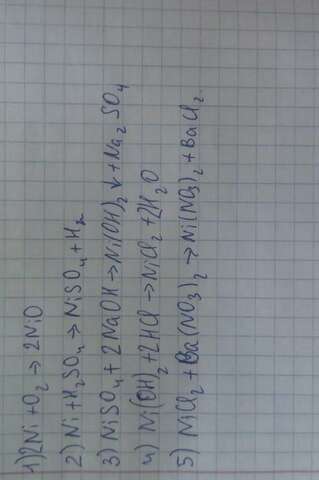 1) 2Ni + O₂ → 2NiO
2) Ni + H₂SO₄ → NiSO₄ + H₂
3) NiSO₄ + 2NaOH → Ni(OH)₂↓ + Na₂SO₄
4) Ni(OH)₂ + 2HCl → NiCl₂ + 2H₂O
5) NiCl₂ + Ba(NO₃)₂ → Ni(NO₃)₂ + BaCl₂